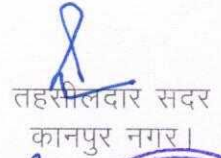 तहसीलदार सदर
कानपुर नगर।